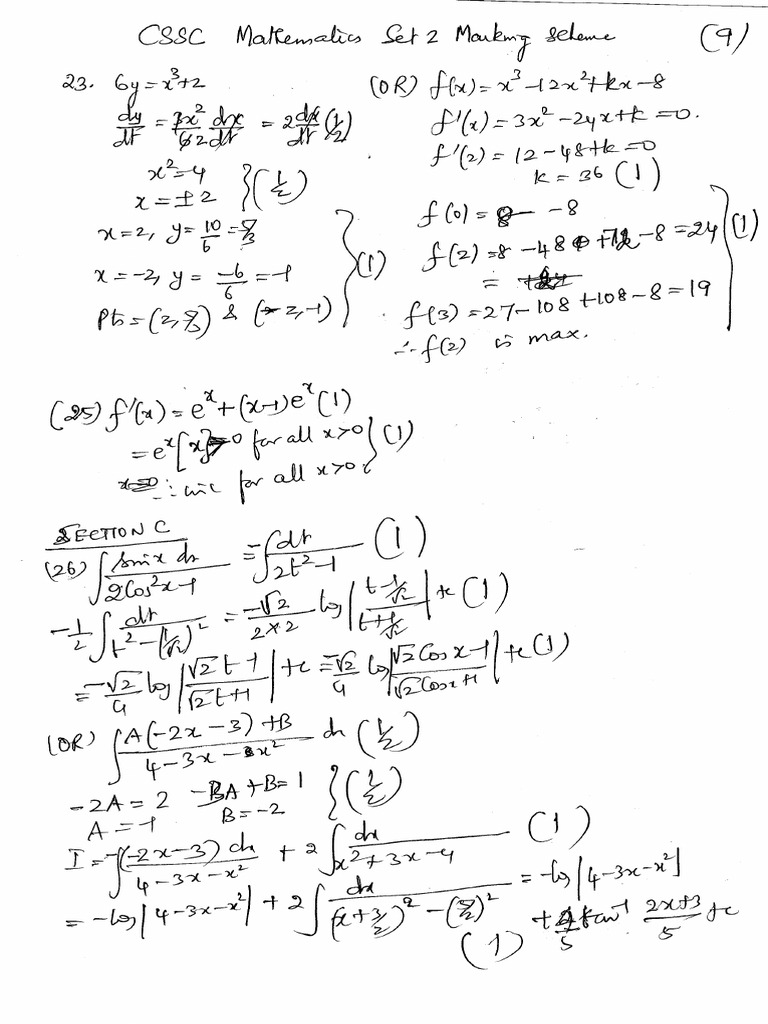 CSSC Mathematics Set 2 Marking Scheme (9)
23. 6y = x³+2
dy/dt = 3x²/6 dx/dt = 2 dx/dt (1/2)
x² = 4
x = ±2 } (1/2)
x = 2, y = 10/6 = 5/3
x = -2, y = -6/6 = -1 (1)
Pts = (2, 5/3) & (-2, -1)
(OR) f(x) = x³ - 12x² + kx - 8
f'(x) = 3x² - 24x + k = 0.
f'(2) = 12 - 48 + k = 0
k = 36 (1)
f(0) = -8
f(2) = 8 - 48 + 72 - 8 = 24 (1)
=
f(3) = 27 - 108 + 108 - 8 = 19
∴ f(2) is max.
(25) f'(x) = eˣ + (x-1)eˣ (1)
= eˣ[x] > 0 for all x>0 } (1)
∴ inc for all x>0
SECTION C
(26) ∫ sinx dx / 2Cos²x-1 = -∫ dt / 2t²-1 (1)
-1/2 ∫ dt / t² - (1/√2)² = -√2 / 2×2 log |t - 1/√2 / t + 1/√2| + c (1)
= -√2/4 log |√2t-1 / √2t+1| + c = -√2/4 log |√2Cosx-1 / √2Cosx+1| + c (1)
(OR) ∫ A(-2x-3)+B / 4-3x-x² dx (1/2)
-2A = 2 -3A+B = 1 } (1/2)
A = -1 B = -2
I = -∫ (-2x-3)dx / 4-3x-x² + 2∫ dx / x²+3x-4 (1)
= -log|4-3x-x²| + 2∫ dx / (x+3/2)² - (5/2)² = -log|4-3x-x²|
(1) + 4/5 tan⁻¹ 2x+3 / 5 + c